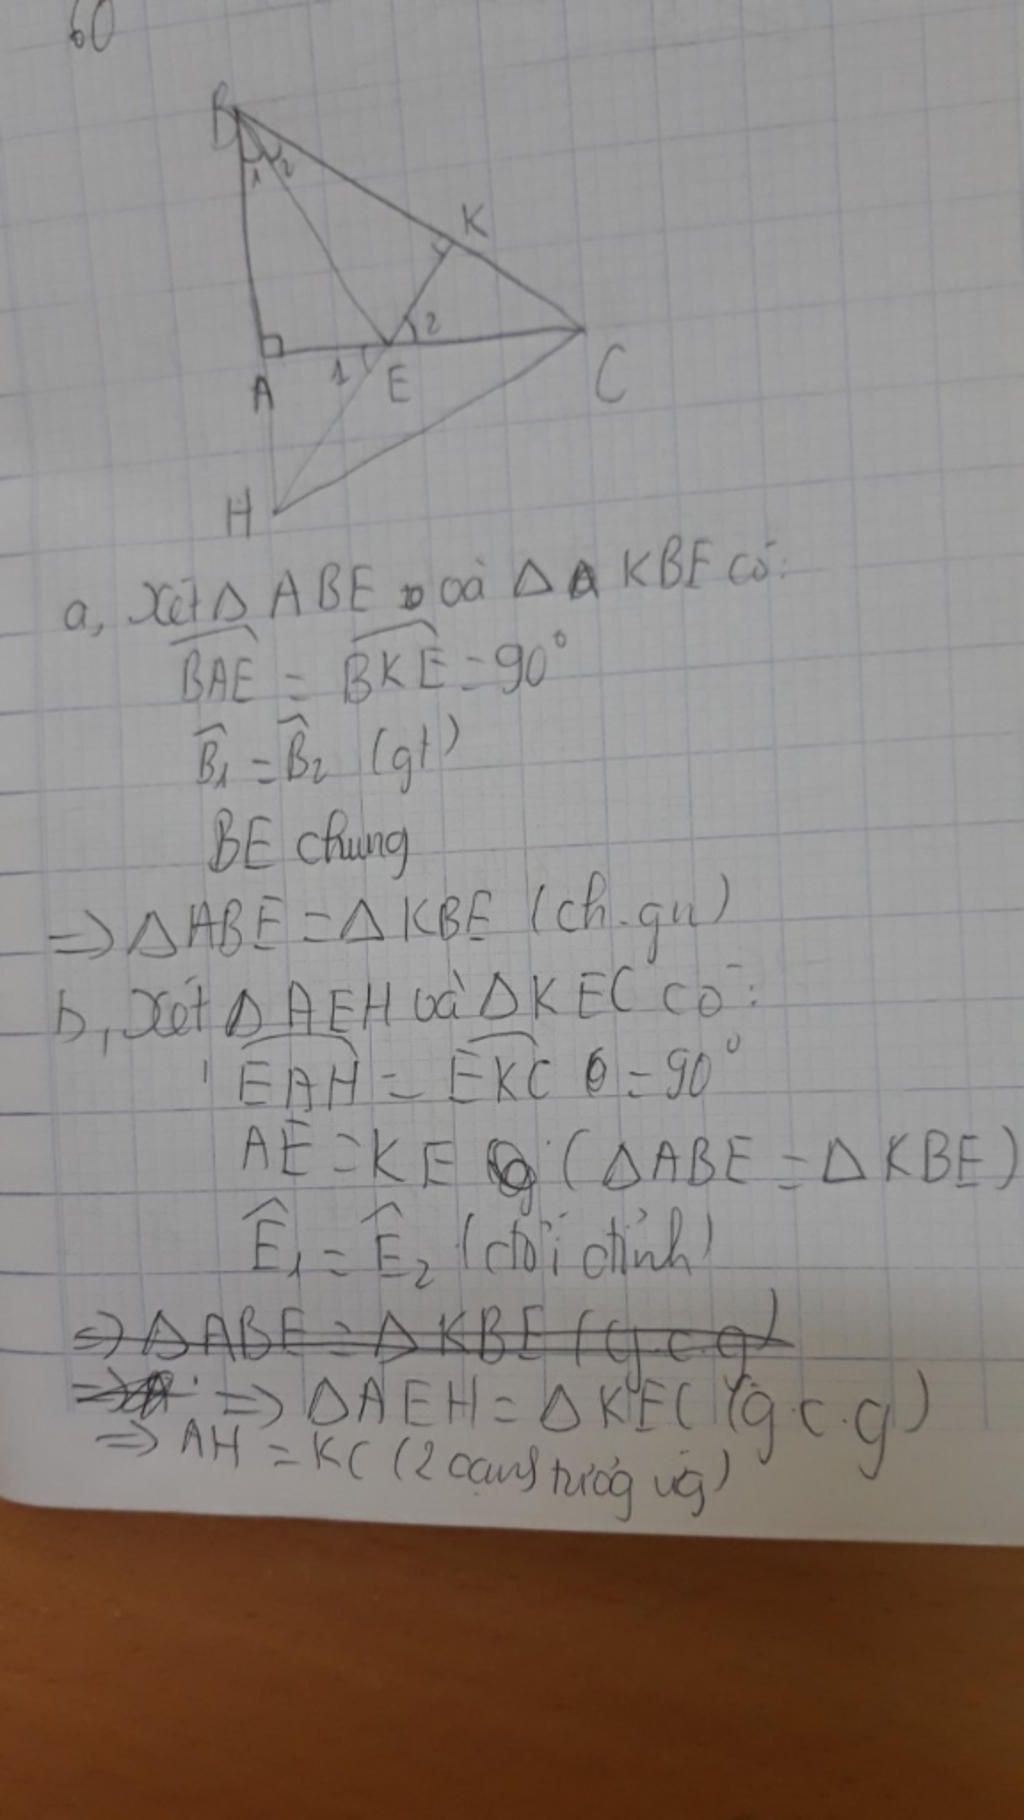 60
B
1 2
K
2
A 1 E C
H
a, Xét Δ ABE và Δ KBE có:
BAE = BKE = 90°
B̂1 = B̂2 (gt)
BE chung
=> Δ ABE = Δ KBE (ch.gn)
b, Xét Δ AEH và Δ KEC có:
EAH = EKC = 90°
AE = KE (Δ ABE = Δ KBE)
Ê1 = Ê2 (đối đỉnh)
=> Δ ABE = Δ KBE (g.c.g)
=> Δ AEH = Δ KEC (g.c.g)
=> AH = KC (2 cạnh tương ứng)